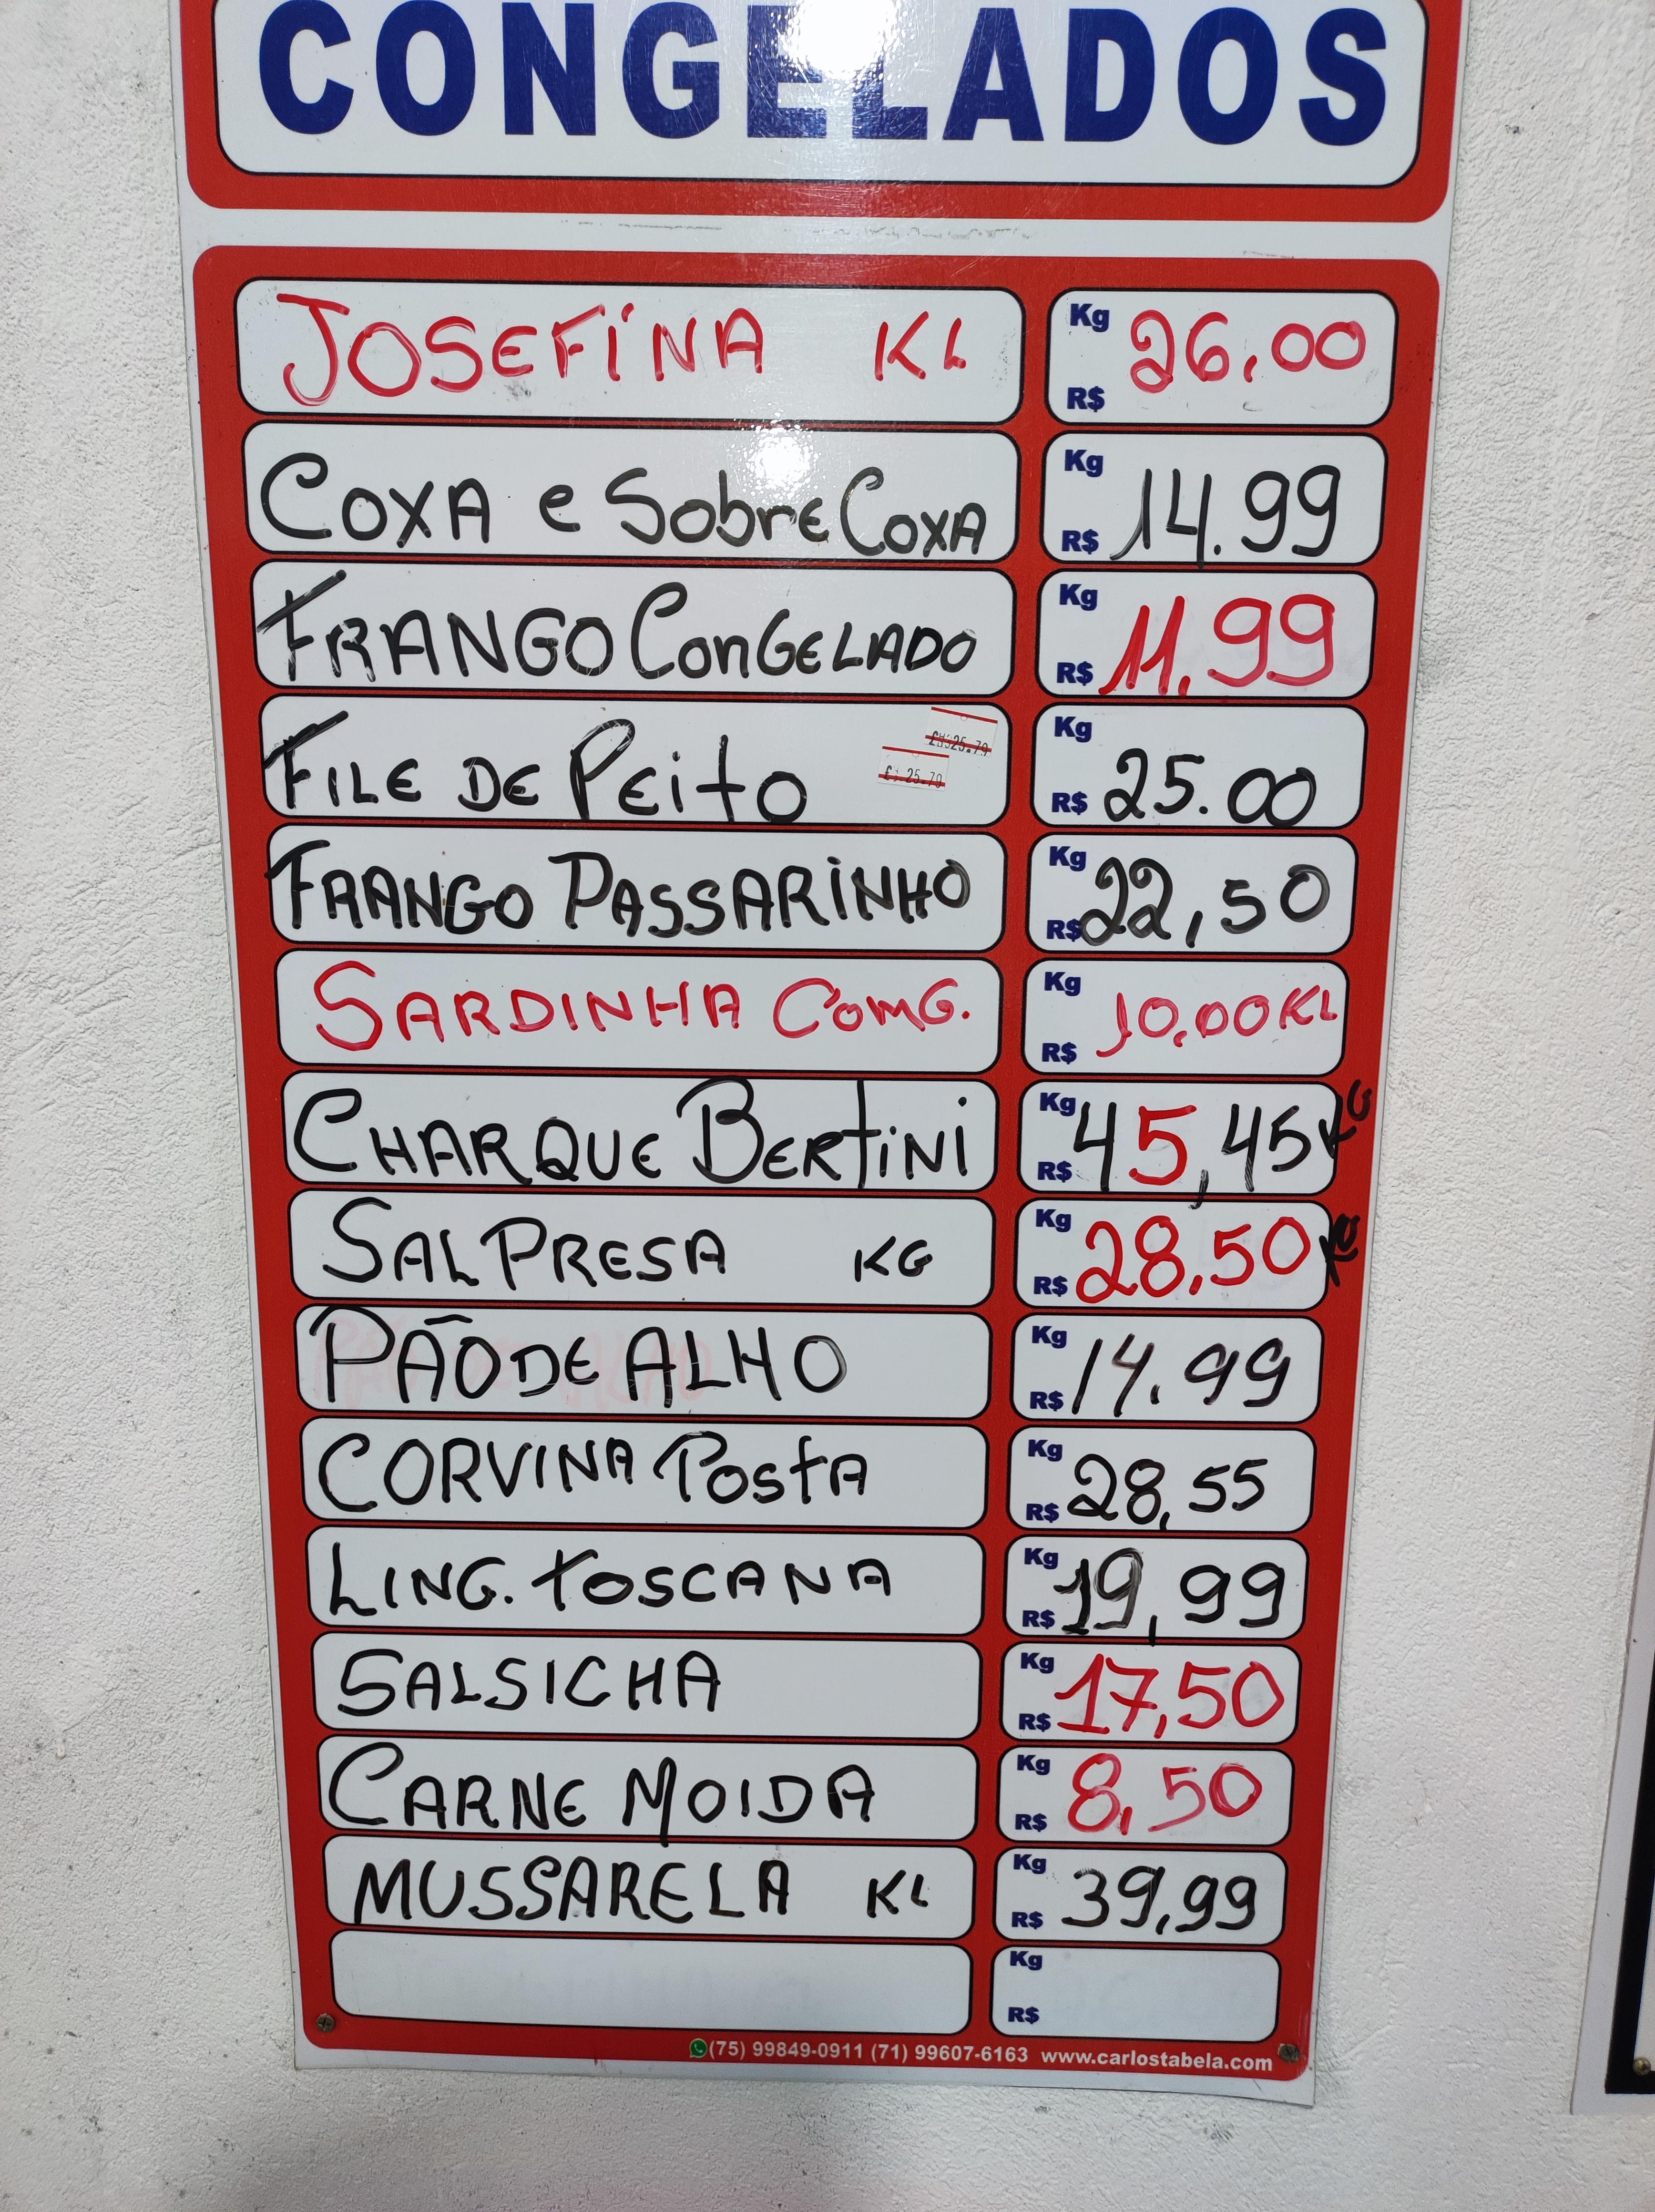 CONGELADOS
JOSEFINA KL Kg R$ 26,00
COXA e SobreCOXA Kg R$ 14.99
FRANGO CONGELADO Kg R$ 11,99
FILE DE PEITO Kg R$ 25.00
FRANGO PASSARINHO Kg R$ 22,50
SARDINHA COMG. Kg R$ 10,00 KL
CHARQUE BERTINI Kg R$ 45,45 KG
SAL PRESA KG Kg R$ 28,50 KG
PÃO DE ALHO Kg R$ 14.99
CORVINA POSTA Kg R$ 28,55
LING. TOSCANA Kg R$ 19,99
SALSICHA Kg R$ 17,50
CARNE MOIDA Kg R$ 8,50
MUSSARELA KL Kg R$ 39,99
Kg R$
(75) 99849-0911 (71) 99607-6163 www.carlostabela.com